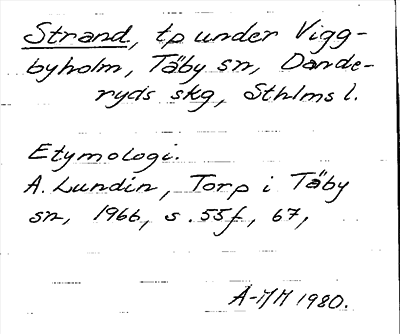 Strand, tp under Vigg-
byholm, Täby sn, Dande-
ryds skg, Sthlms l.
Etymologi.
A. Lundin, Torp i Täby
sn, 1966, s. 55f, 67,
A-MM 1980.